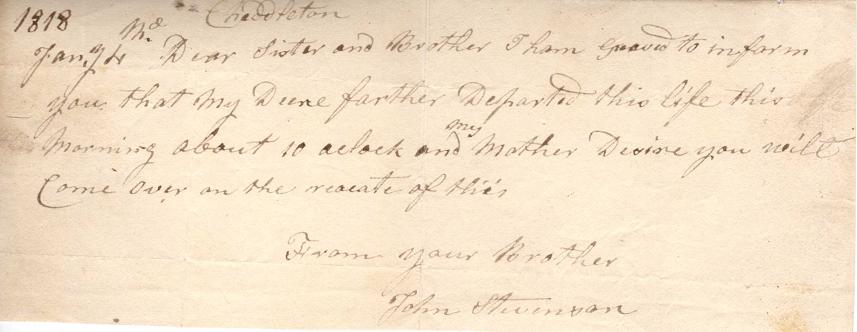 1818 Cheddleton
Jany 4 Dear Sister and Brother I ham greaved to inform
you that My Deere farther Departed this life this
Morning about 10 aclock and my Mother Desire you will
Come over on the receate of this
From your Brother
John Stevenson